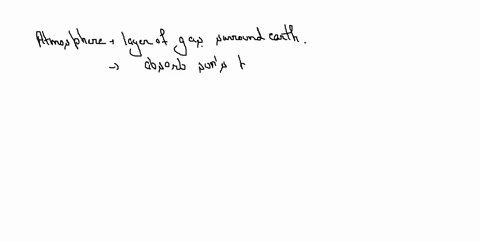 Atmosphere → layer of gas surround earth.
→ absorb sun's t